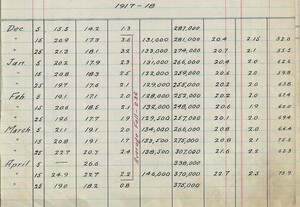 1917-18
Dec 5 15.5 14.2 1.3 287,000
" 15 20.9 17.3 3.6 131,000 281,000 20.4 2.15 62.0
" 25 21.3 18.1 3.2 133,000 274,000 20.7 2.1 65.5
Jan 5 20.2 17.9 2.3 131,000 266,000 20.4 2.0
" 15 20.8 18.3 2.5 259,000 20.6 2.0
" 25 19.7 17.6 2.1 129,000 20.2 2.0
Feb 5 19.1 17.1 2.0 20.2 2.0
" 15 20.6 18.5 2.1 132,000 248,000 20.6 1.9
" 25 19.6 17.7 1.9 129,500 257,000 20.1 1.9
March 5 21.1 19.1 2.0 134,000 266,000 20.8 2.0
" 15 20.8 19.1 1.7 275,000 20.8 2.0
" 25 22.7 20.3 2.4 138,500 307,000 21.6 2.2
April 5 — 26.0 338,000
" 15 24.9 22.7 2.2 146,000 370,000 22.7 2.5
" 25 19.0 18.2 0.8 375,000